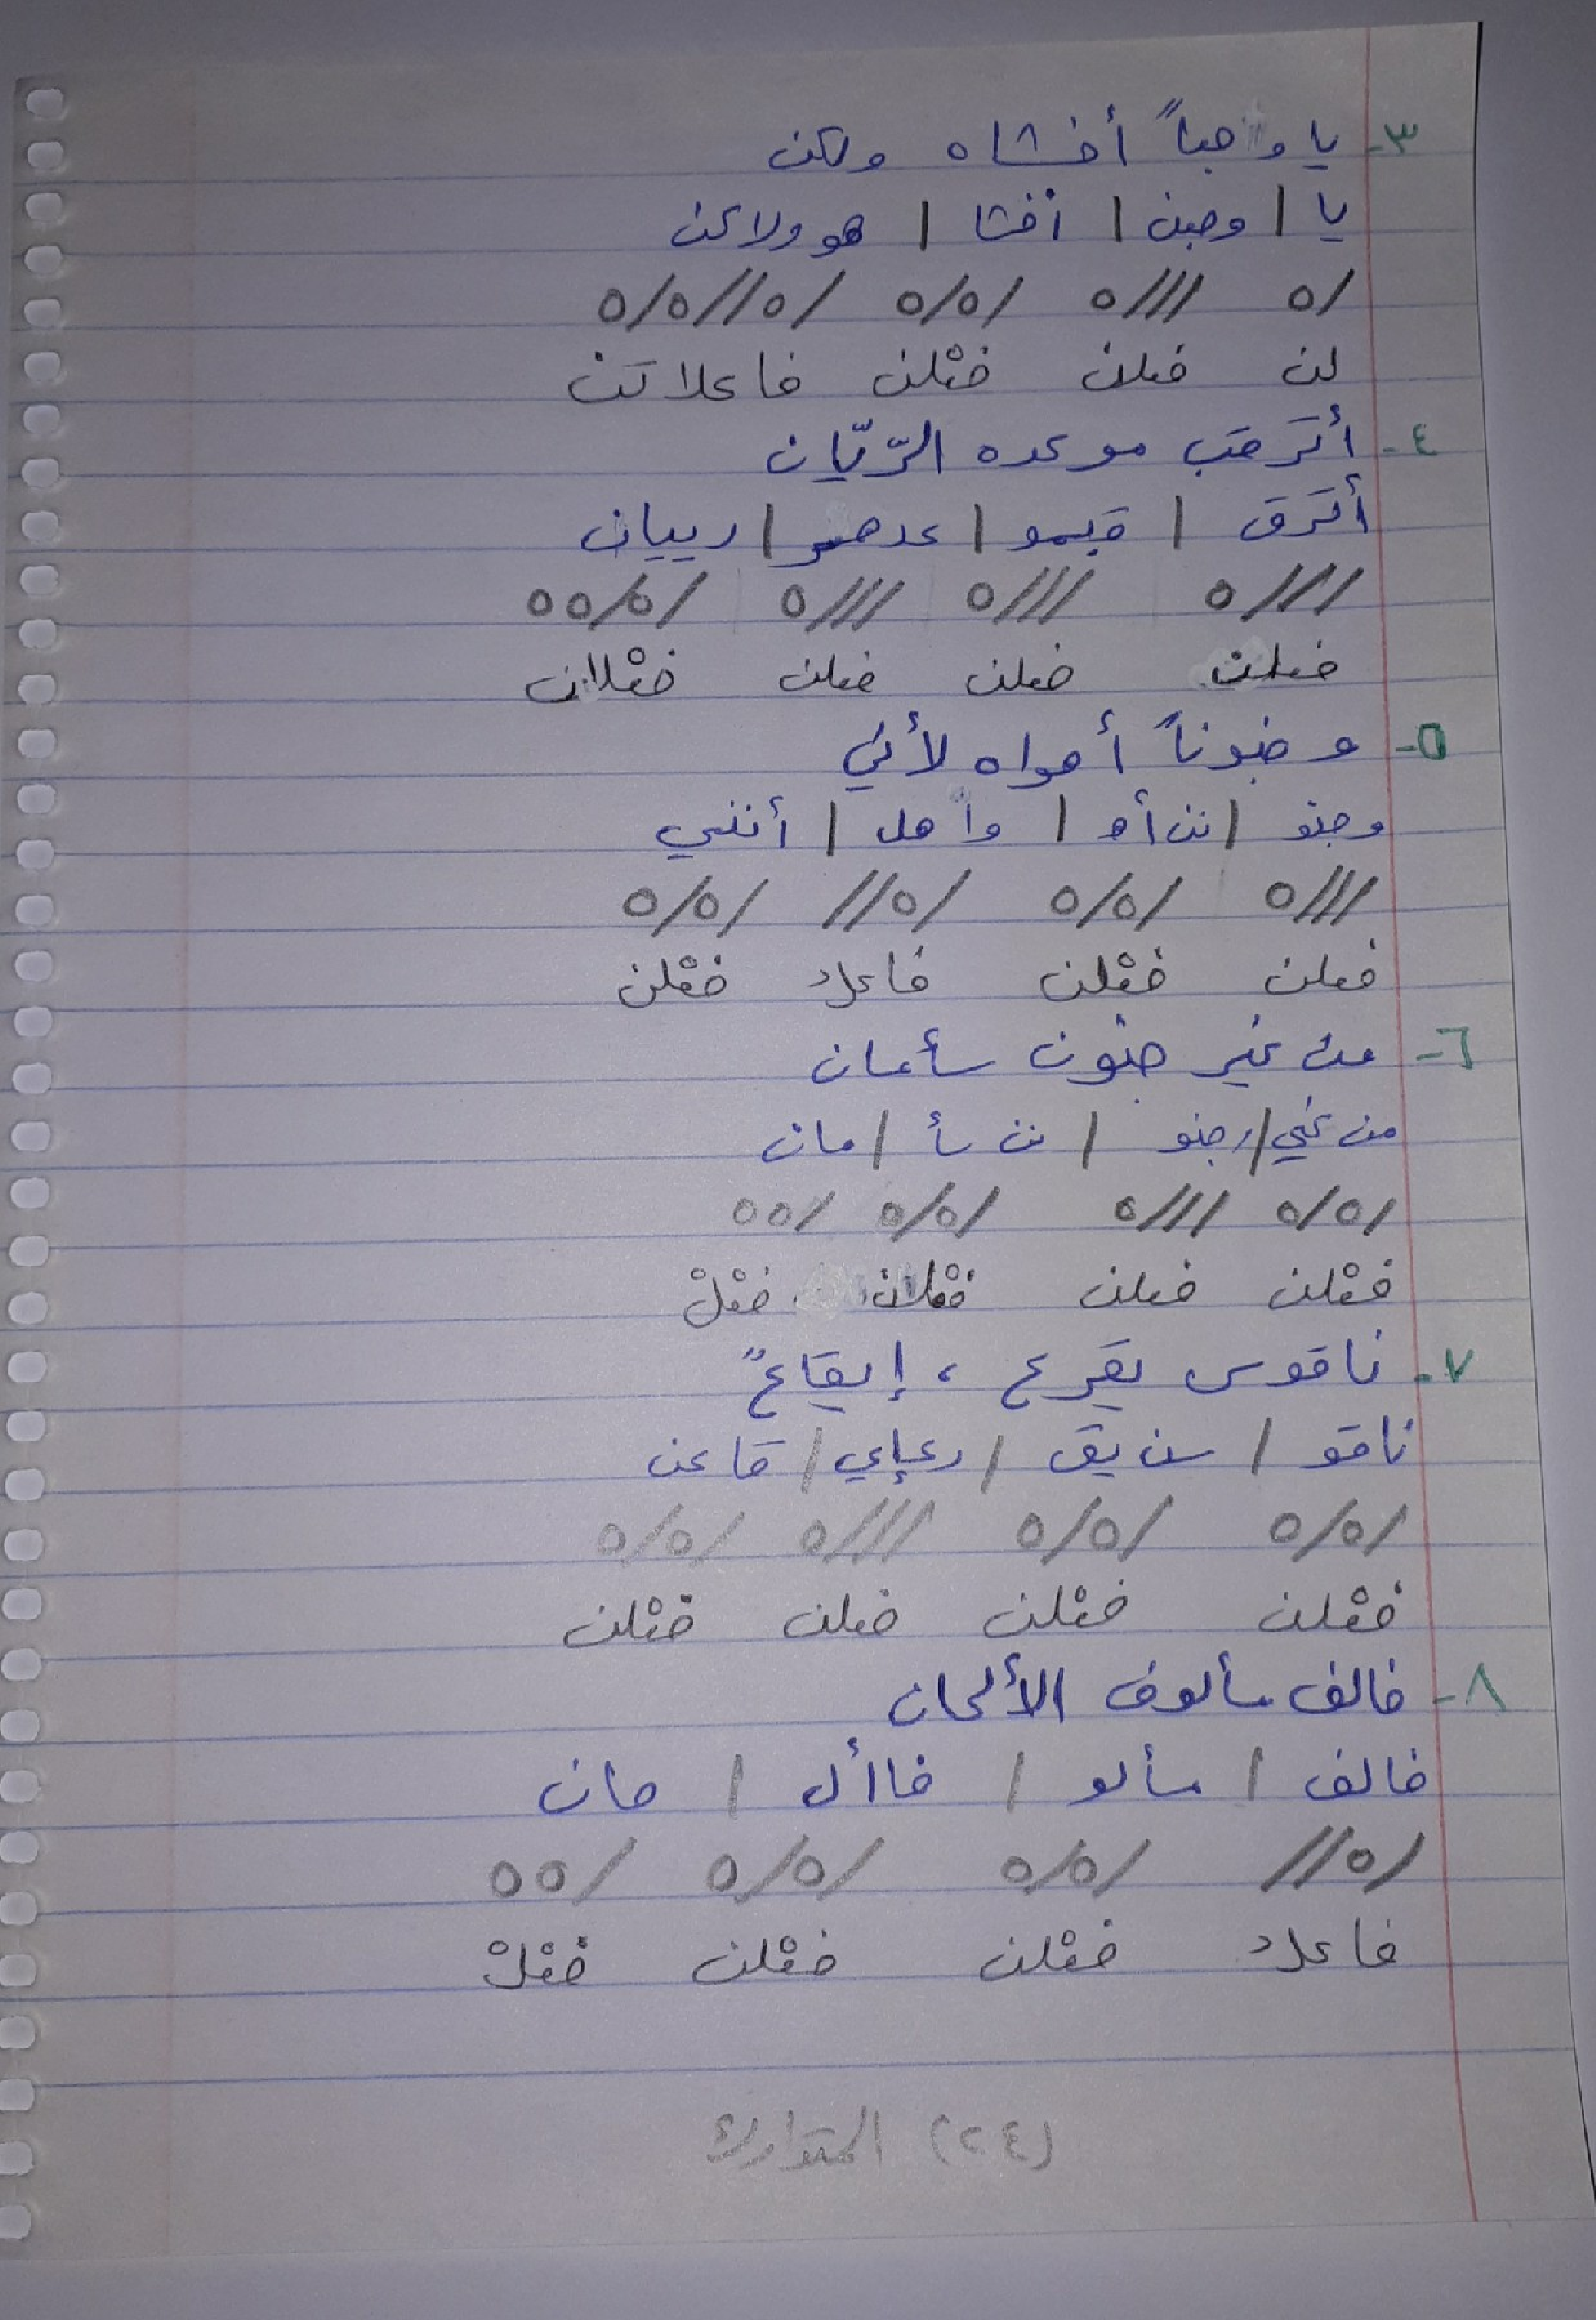 ٣- يا وجباً أخشاه ولكن
يا / وجبن / أخشا / هو ولاكن
/ه ///ه /ه/ه /ه//ه/ه
لن فعلن فعْلن فاعلاتن
٤- أترقب موعده الرّيّان
أترق / قبمو / عدهر / رييان
///ه ///ه ///ه /ه/هه
فعلن فعلن فعلن فعْلان
٥- وجنوناً أهواه لأني
وجنو / نن أه / وا هل / أنني
///ه /ه/ه /ه// /ه/ه
فعلن فعْلن فاعلُ فعْلن
٦- من غير جنون سأعان
من غي / رجنو / نن سأ / مان
/ه/ه ///ه /ه/ه /هه
فعْلن فعلن فعْلن فعْلْ
٧- ناقوس يقرع ، إيقاعٌ
ناقو / سن يق / رع إي / قاعن
/ه/ه /ه/ه ///ه /ه/ه
فعْلن فعْلن فعلن فعْلن
٨- خالف مألوف الألحان
خالف / مألو / فاأل / حان
/ه// /ه/ه /ه/ه /هه
فاعلُ فعْلن فعْلن فعْلْ
(٢٤) المتدارك